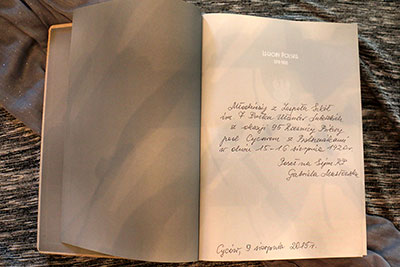 Młodzieży z Zespołu Szkół
im. 7 Pułku Ułanów Lubelskich
z okazji 95 Rocznicy Bitwy
pod Cycowem z Bolszewikami
w dniu 15-16 sierpnia 1920r.
Poseł na Sejm RP
Gabriela Masłowska
Cyców, 9 sierpnia 2015r.